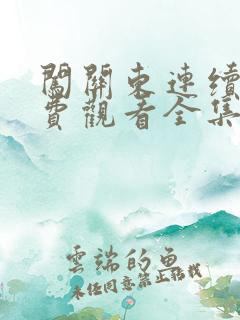 闖關東連續
費觀看全集
雲端的魚
未经同意禁止转载